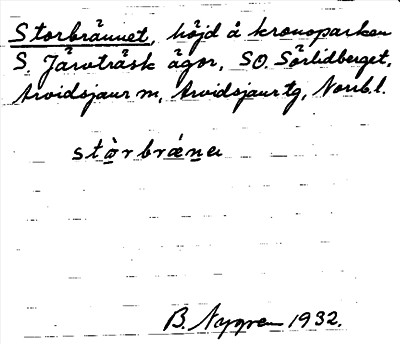 Storbrännet, höjd å kronoparken
S. Järvträsk ägor, SO. Sörlidberget,
Arvidsjaur m, Arvidsjaur tg, Norrb.l.
stòrbrǽna
B. Nygren 1932.